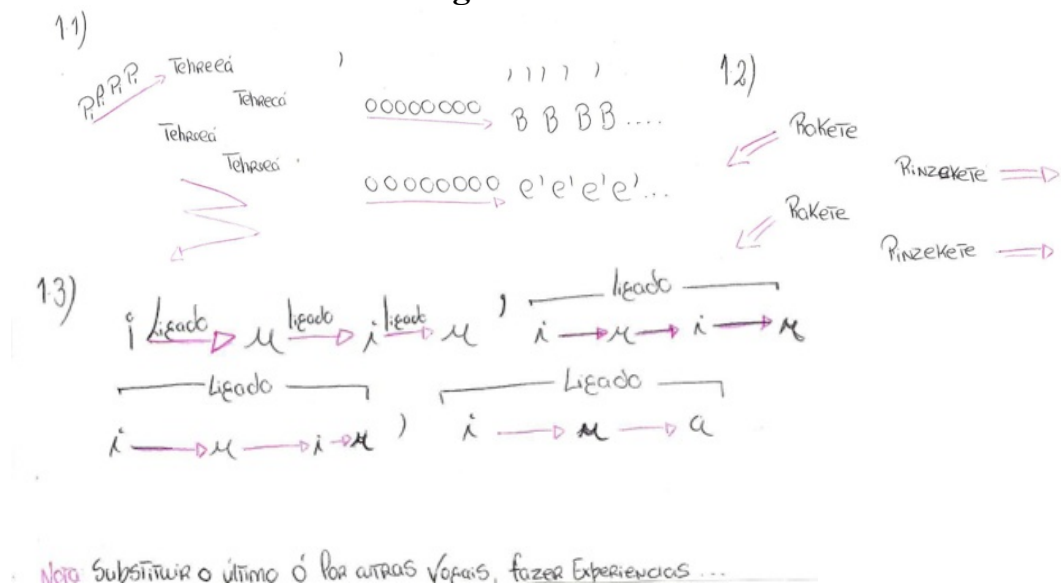 1.1)
Pi Pi Pi Pi Tehrecá
Tehrecá
Tehrecá
Tehrecá
,
, , , , ,
OOOOOOOO B B B B ....
OOOOOOOO e' e' e' e' ...
1.2)
Rakete
Pinzekete
Rakete
Pinzekete
1.3)
i Ligado u ligado i ligado u , ligado
i u i u
Ligado Ligado
i u i u , i u a
Nota Substituir o último ó Por outras Vogais, fazer Experiencias ...